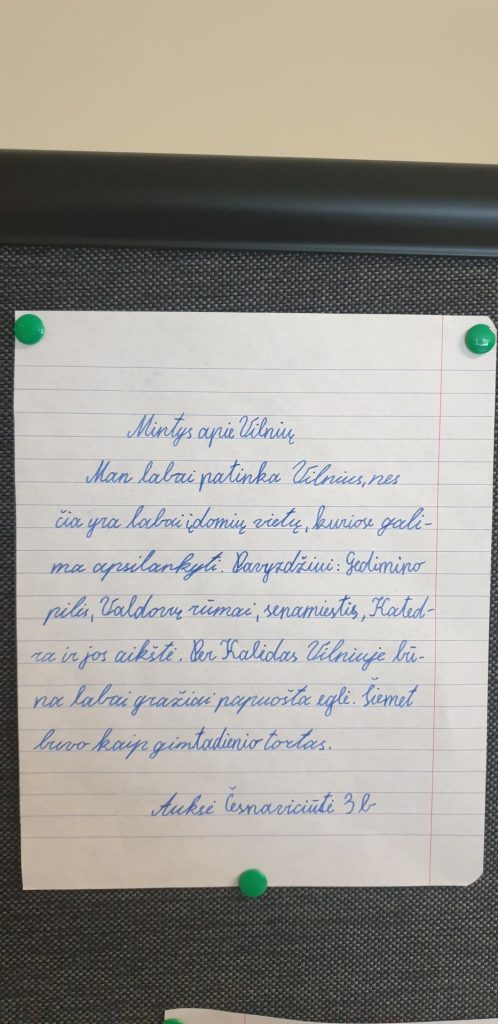 Mintys apie Vilnių
Man labai patinka Vilnius, nes
čia yra labai įdomių vietų, kuriose gali-
ma apsilankyti. Pavyzdžiui: Gedimino
pilis, Valdovų rūmai, senamiestis, Kated-
ra ir jos aikštė. Per Kalėdas Vilniuje bū-
na labai gražiai papuošta eglė. Šiemet
buvo kaip gimtadienio tortas.
Auksė Česnavičiūtė 3b